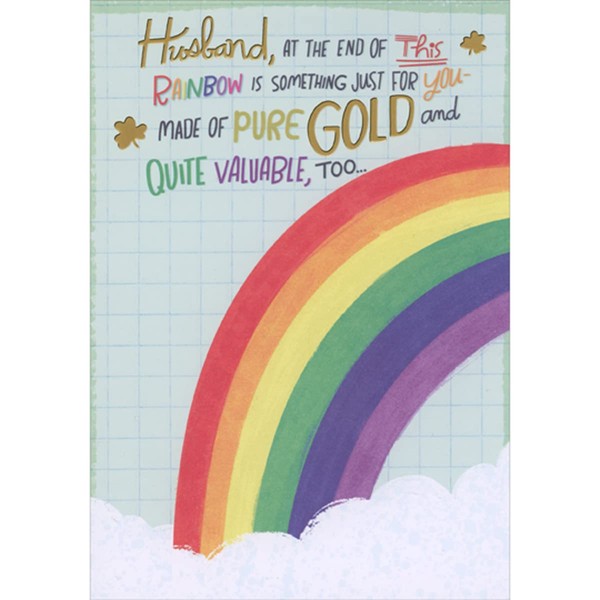 Husband, AT THE END OF This
RAINBOW IS SOMETHING JUST FOR YOU-
MADE OF PURE GOLD and
QUITE VALUABLE, TOO...